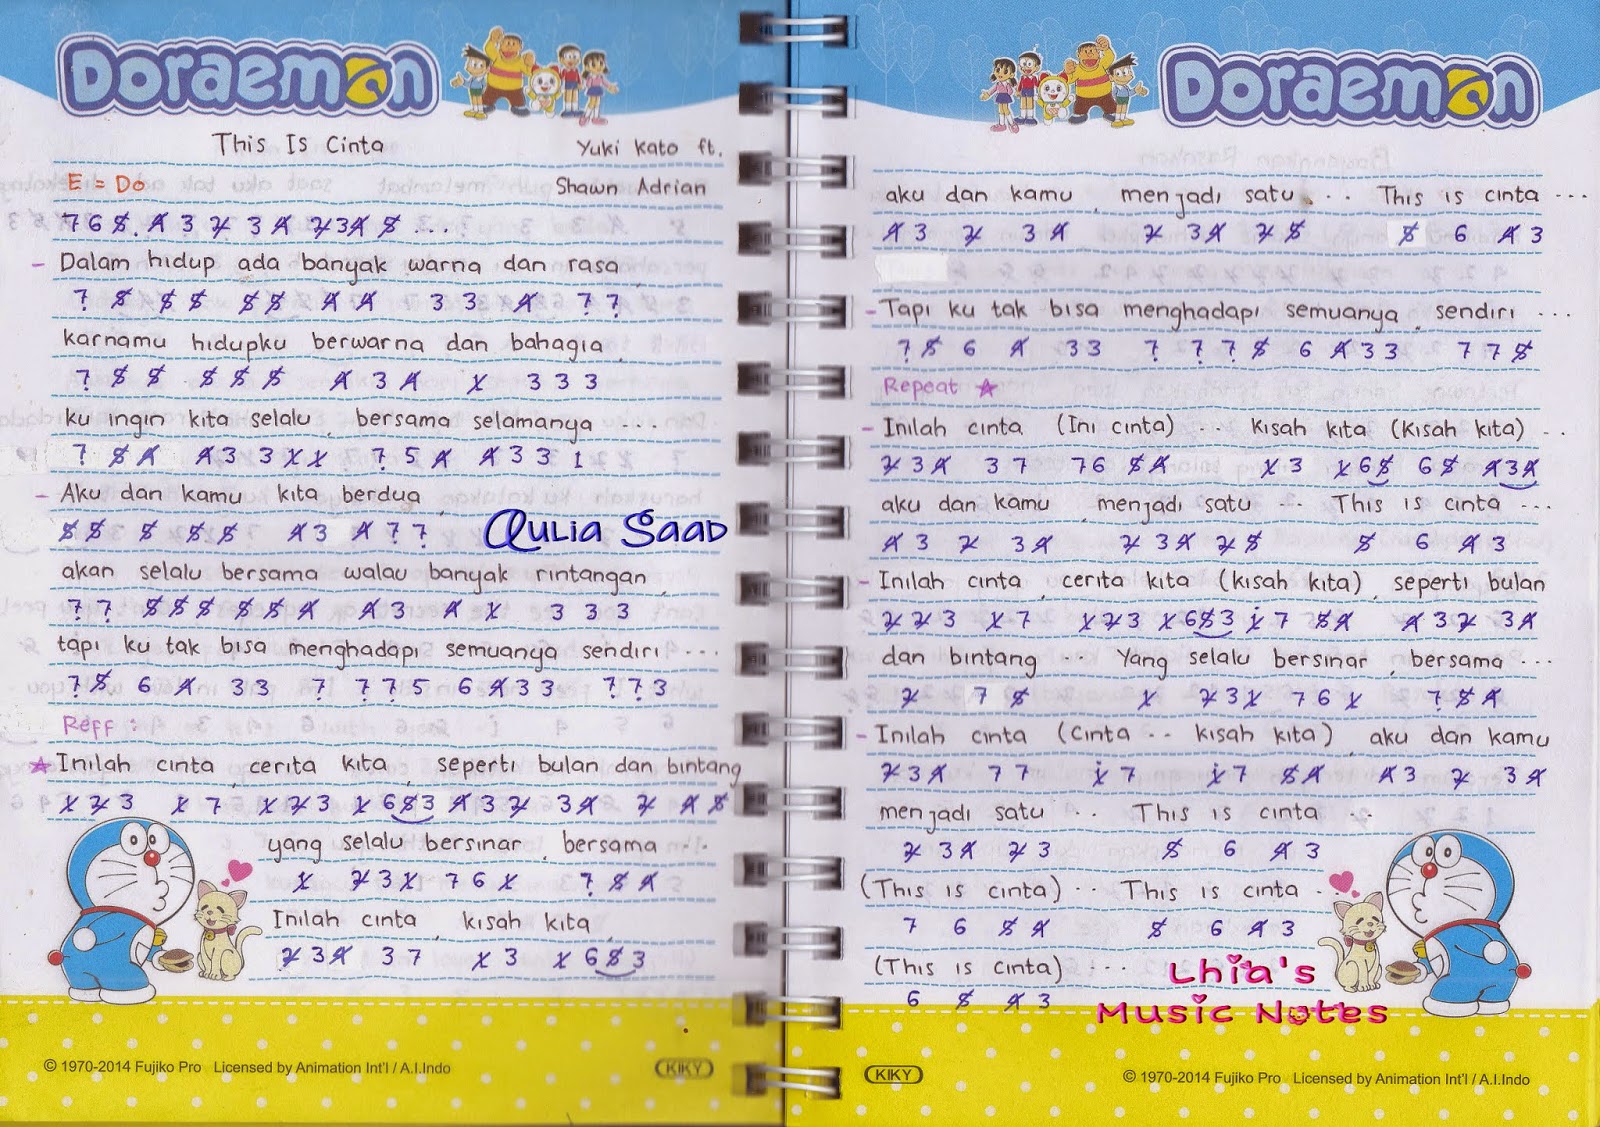 Doraemon
This Is Cinta Yuki Kato ft.
E = Do Shawn Adrian
7 6 5 4 3 2 3 4 2 3 4 5 ...
- Dalam hidup ada banyak warna dan rasa
7 5 5 5 5 5 4 4 3 3 4 7 7
karnamu hidupku berwarna dan bahagia
7 5 5 5 5 5 4 3 4 1 3 3 3
ku ingin kita selalu, bersama selamanya ....
7 5 4 4 3 3 1 1 7 5 4 4 3 3 1
- Aku dan kamu kita berdua
5 5 5 5 5 4 3 4 7 7
Aulia Saad
akan selalu bersama walau banyak rintangan
7 7 5 5 5 5 5 4 4 3 4 1 3 3 3
tapi ku tak bisa menghadapi semuanya sendiri ....
7 5 6 4 3 3 7 7 7 5 6 4 3 3 7 7 3
Reff :
★ Inilah cinta, cerita kita, seperti bulan dan bintang
1 2 3 1 7 1 2 3 1 6 5 3 4 3 2 3 4 2 4 5
yang selalu bersinar, bersama ...
1 2 3 1 7 6 1 7 5 4
Inilah cinta, kisah kita
2 3 4 3 7 1 3 1 6 5 3
© 1970-2014 Fujiko Pro Licensed by Animation Int'l / A.I.Indo
KIKY
Doraemon
aku dan kamu, menjadi satu ... This is cinta ...
4 3 2 3 4 2 3 4 2 5 5 6 4 3
- Tapi ku tak bisa menghadapi semuanya, sendiri ...
7 5 6 4 3 3 7 7 7 5 6 4 3 3 7 7 5
Repeat ★
- Inilah cinta (Ini cinta) .. kisah kita (kisah kita) ..
2 3 4 3 7 7 6 5 4 1 3 1 6 5 6 5 4 3 4
aku dan kamu, menjadi satu ... This is cinta ...
4 3 2 3 4 2 3 4 2 5 5 6 4 3
- Inilah cinta, cerita kita (kisah kita), seperti bulan
2 2 3 1 7 1 2 3 1 6 5 3 1 7 5 4 4 3 2 3 4
dan bintang ... Yang selalu bersinar, bersama ...
2 7 5 1 2 3 1 7 6 1 7 5 4
- Inilah cinta (Cinta .. kisah kita), aku dan kamu
2 3 4 7 7 1 7 1 7 5 4 4 3 2 3 4
menjadi satu .. This is cinta ...
2 3 4 2 3 5 6 4 3
(This is cinta) .. This is cinta ..
7 6 5 4 5 6 4 3
(This is cinta) ....
6 5 4 3
Lhia's
Music Notes
KIKY
© 1970-2014 Fujiko Pro Licensed by Animation Int'l / A.I.Indo